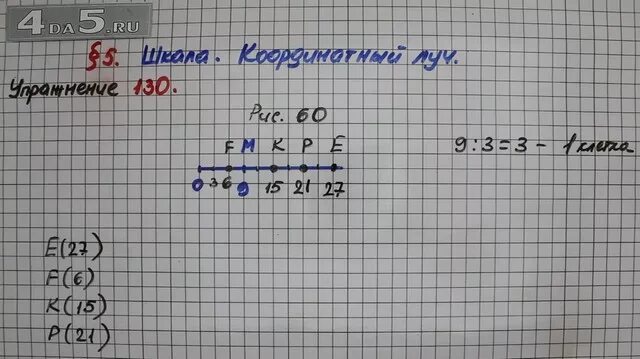 4DA5.RU
§5. Шкала. Координатный луч.
Упражнение 130.
Рис. 60
F M K P E
9:3=3 - 1 клетка
0 3 6 9 15 21 27
E(27)
F(6)
K(15)
P(21)